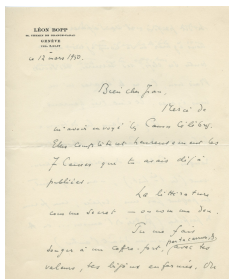 LÉON BOPP
GENÈVE
ce 12 mars 1950.
Bien cher Jean,
Merci de
m'avoir envoyé les Causes Célèbres.
Elles complètent heureusement les
7 Causes que tu avais déjà
publiées.
La littérature
comme secret
Tu me fais
songer à un coffre-fort, avec tes
valeurs, tes bijoux enfermés. On